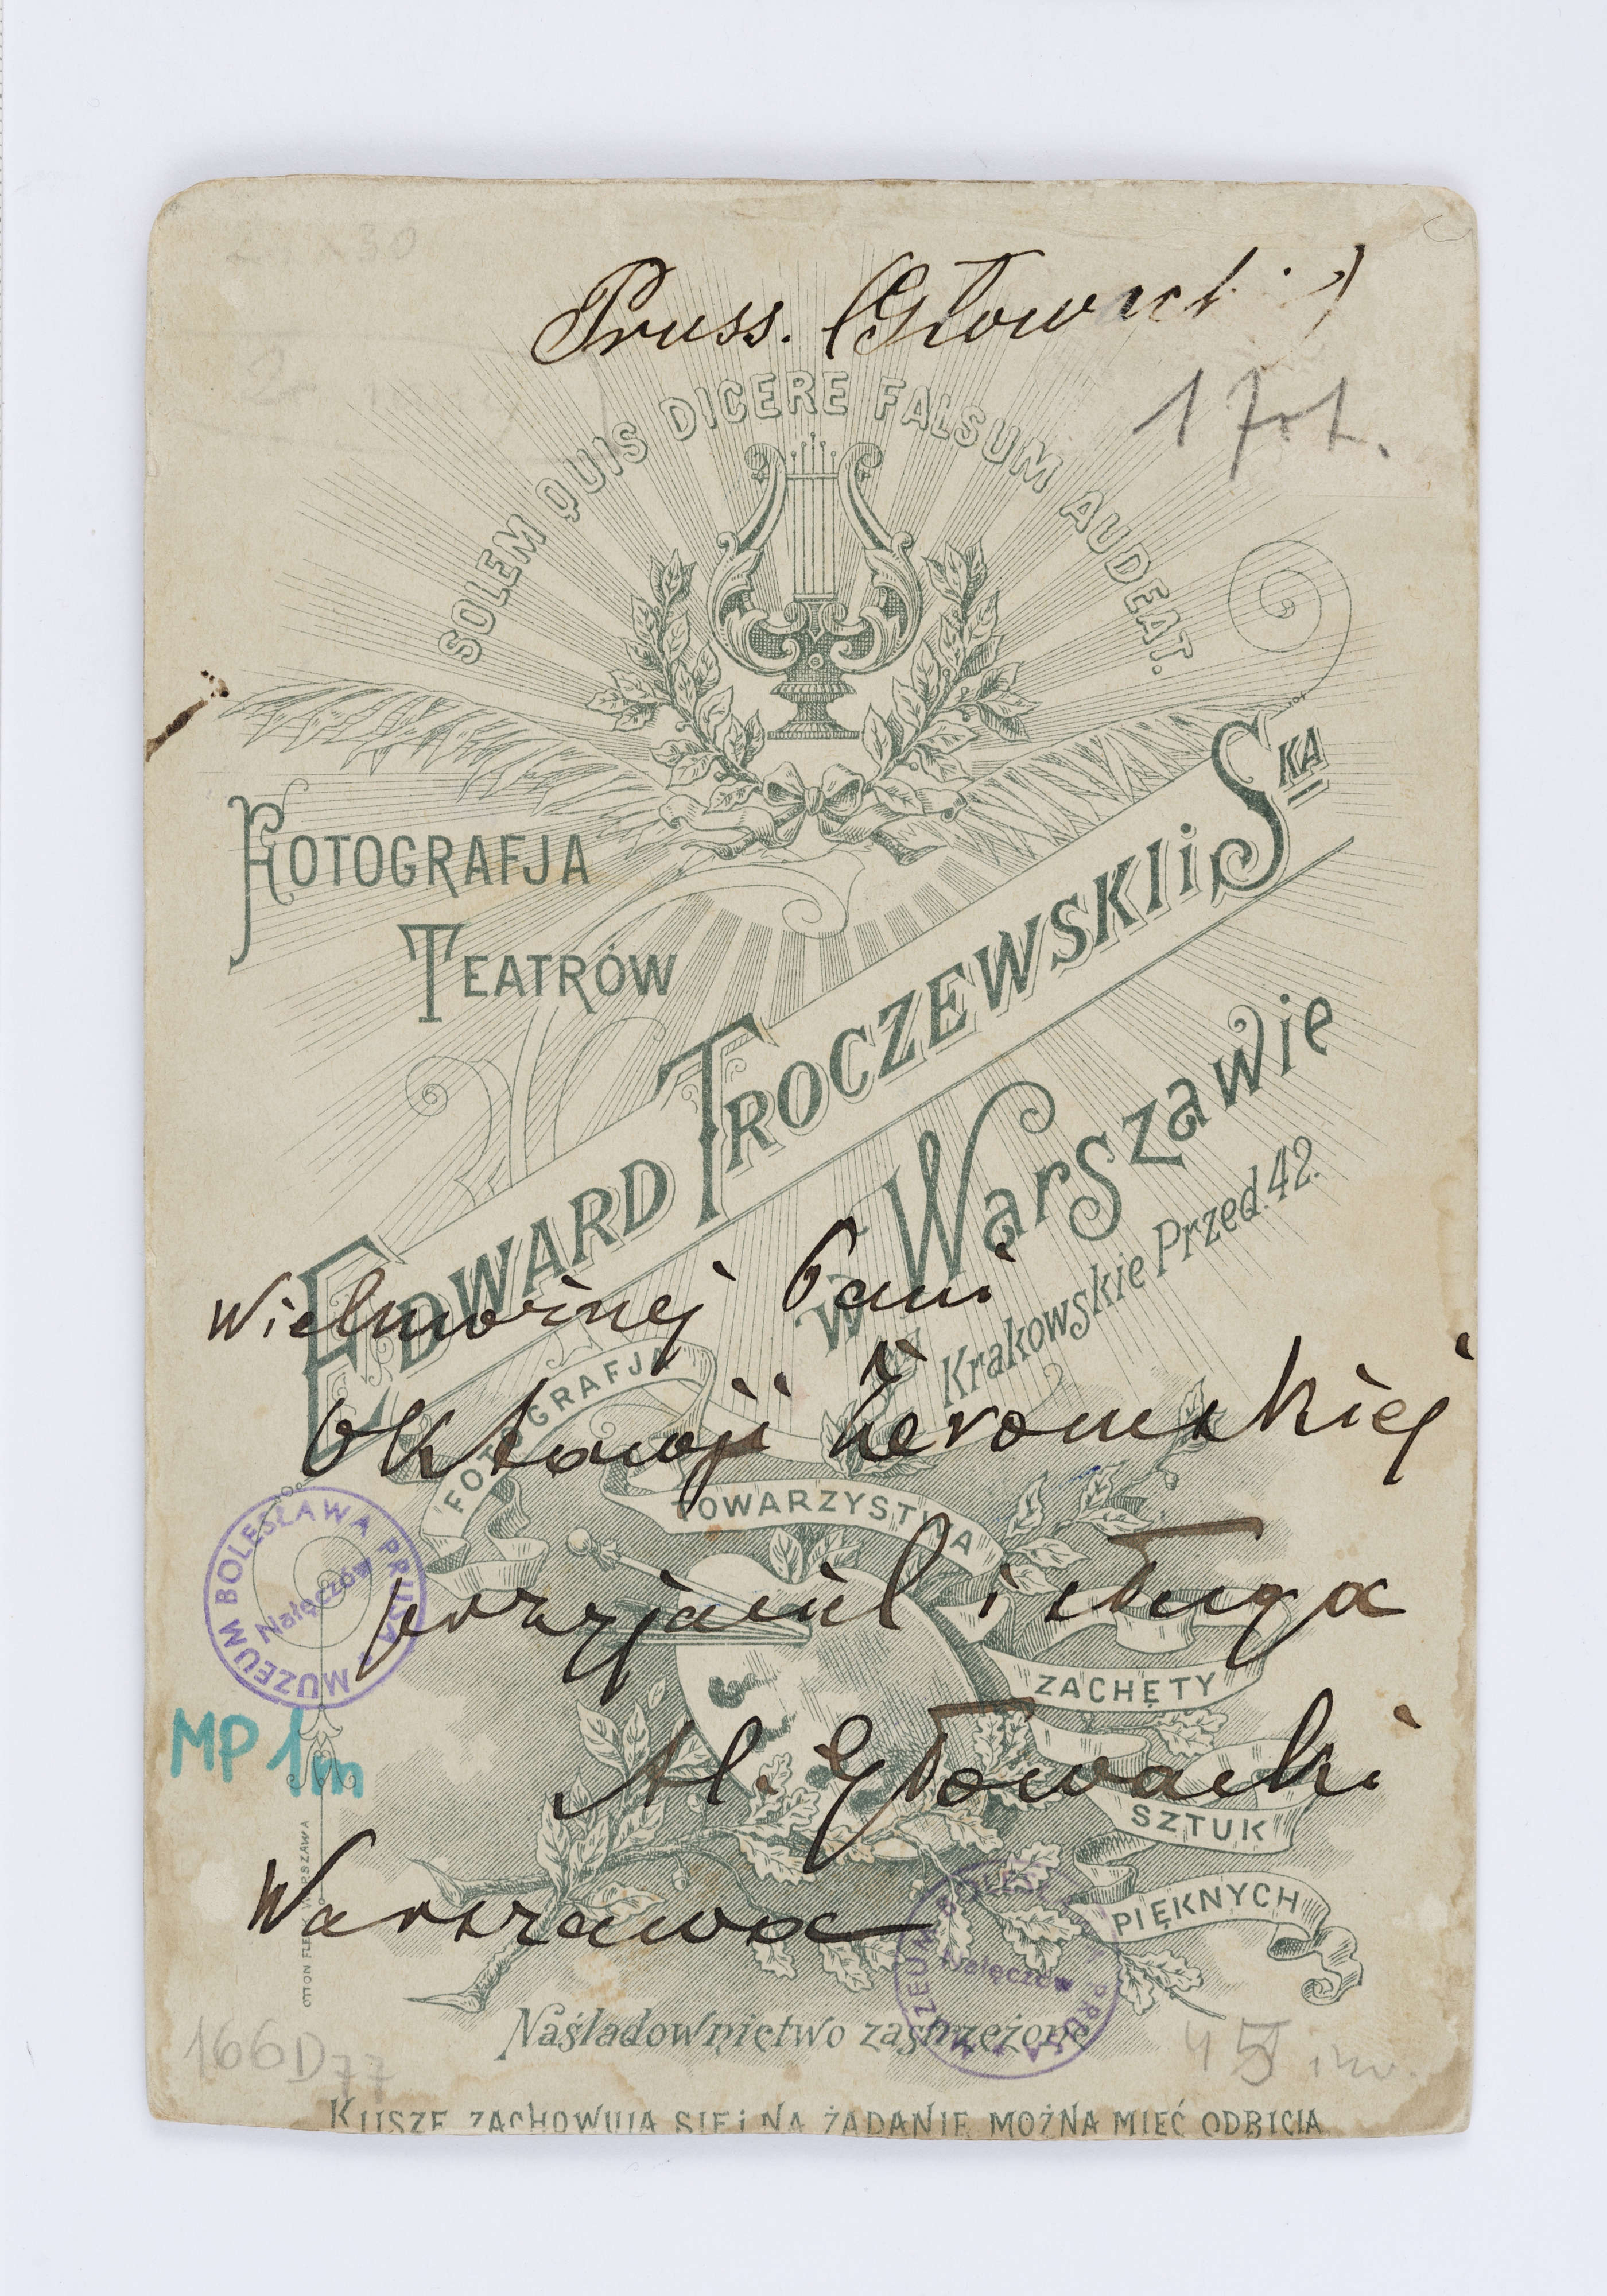 Pruss. (Głowacki)
1 fot.
SOLEM QUIS DICERE FALSUM AUDEAT.
FOTOGRAFJA
TEATRÓW
EDWARD TROCZEWSKI i SKA
w Warszawie
Krakowskie Przed. 42.
Wielmożnej Pani
Oktawji Żeromskiej
przyjaciel i sługa
Al. Głowacki
Warszawa
FOTOGRAFJA
TOWARZYSTWA
ZACHĘTY
SZTUK
PIĘKNYCH
MUZEUM BOLESŁAWA PRUSA
Nałęczów
MP 1m
MUZEUM BOLESŁAWA PRUSA
Nałęczów
Naśladownictwo zastrzeżone
166D77
45 inw.
KLISZE ZACHOWUJĄ SIĘ i NA ŻĄDANIE MOŻNA MIEĆ ODBICIA